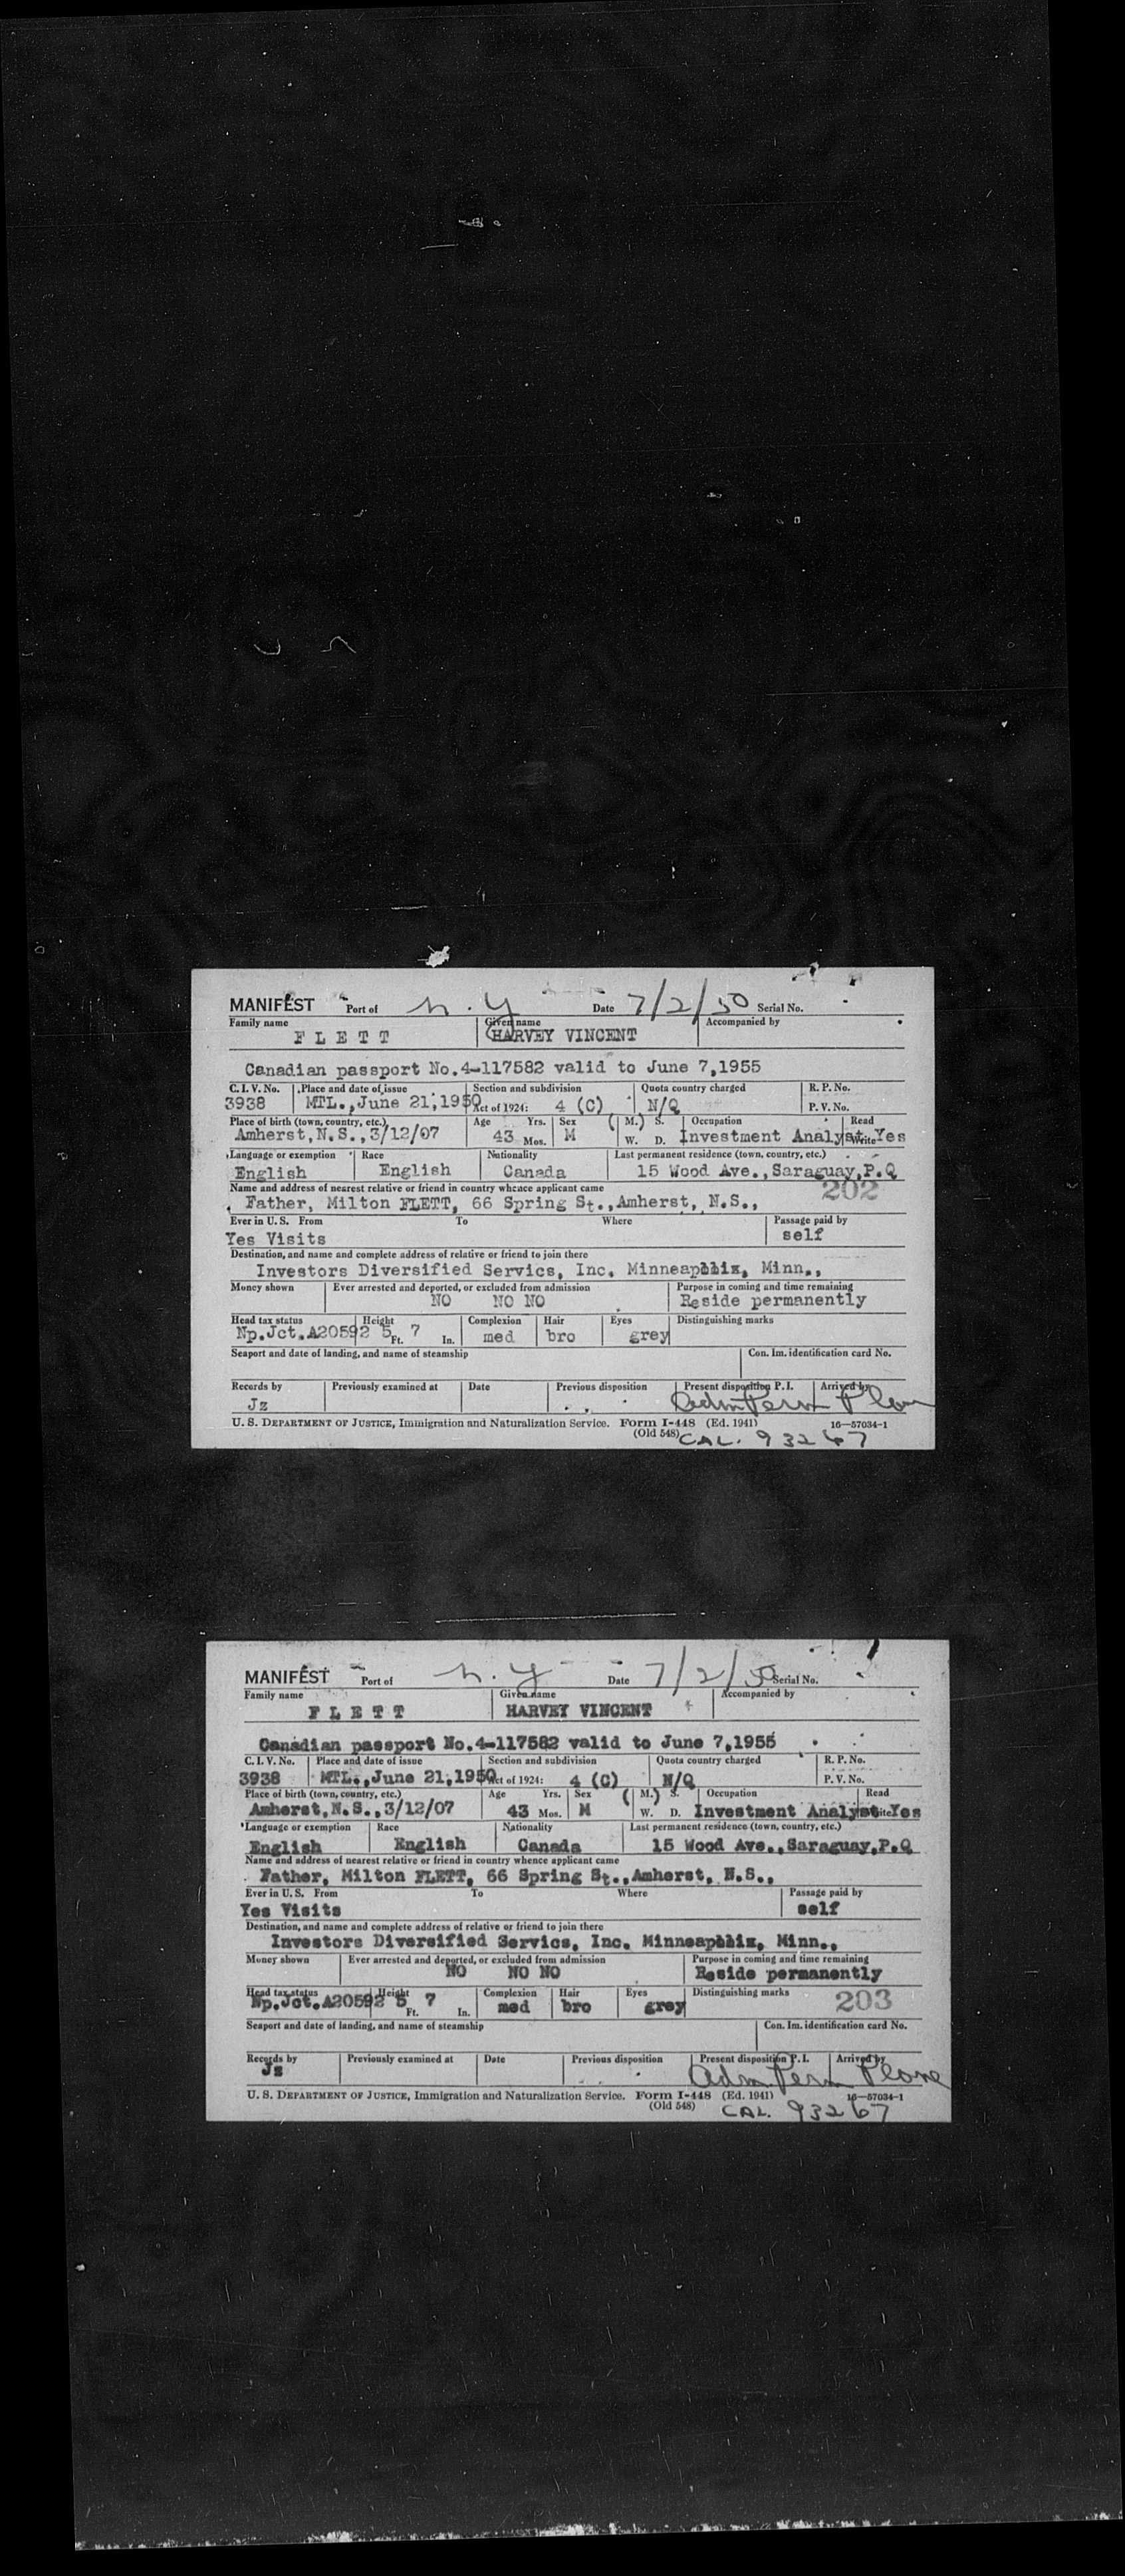 MANIFEST Port of N.Y Date 7/2/50 Serial No.
Family name Given name Accompanied by
FLETT HARVEY VINCENT
Canadian passport No.4-117582 valid to June 7,1955
C. I. V. No. Place and date of issue Section and subdivision Quota country charged R. P. No.
3938 MTL., June 21,1950 Act of 1924: 4 (C) N/Q P. V. No.
Place of birth (town, country, etc.) Age Yrs. Sex (M.) S. Occupation Read
Amherst,N.S.,3/12/07 43 Mos. M W. D. Investment Analyst Write Yes
Language or exemption Race Nationality Last permanent residence (town, country, etc.)
English English Canada 15 Wood Ave., Saraguay,P.Q
Name and address of nearest relative or friend in country whence applicant came 202
Father, Milton FLETT, 66 Spring St.,Amherst, N.S.,
Ever in U. S. From To Where Passage paid by
Yes Visits self
Destination, and name and complete address of relative or friend to join there
Investors Diversified Servics, Inc. Minneapolis, Minn.,
Money shown Ever arrested and deported, or excluded from admission Purpose in coming and time remaining
NO NO NO Reside permanently
Head tax status Height Complexion Hair Eyes Distinguishing marks
Np.Jct.A20592 5 Ft. 7 In. med bro grey
Seaport and date of landing, and name of steamship Con. Im. identification card No.
Records by Previously examined at Date Previous disposition Present disposition P. I. Arrived by
Jz Adm Perm Plane
U. S. DEPARTMENT OF JUSTICE, Immigration and Naturalization Service. Form I-448 (Ed. 1941) 16—57034-1
(Old 548) CAL. 93267
MANIFEST Port of N.Y Date 7/2/50 Serial No.
Family name Given name Accompanied by
FLETT HARVEY VINCENT
Canadian passport No.4-117582 valid to June 7,1955
C. I. V. No. Place and date of issue Section and subdivision Quota country charged R. P. No.
3938 MTL., June 21,1950 Act of 1924: 4 (C) N/Q P. V. No.
Place of birth (town, country, etc.) Age Yrs. Sex (M.) S. Occupation Read
Amherst,N.S.,3/12/07 43 Mos. M W. D. Investment Analyst Write Yes
Language or exemption Race Nationality Last permanent residence (town, country, etc.)
English English Canada 15 Wood Ave., Saraguay,P.Q
Name and address of nearest relative or friend in country whence applicant came
Father, Milton FLETT, 66 Spring St.,Amherst, N.S.,
Ever in U. S. From To Where Passage paid by
Yes Visits self
Destination, and name and complete address of relative or friend to join there
Investors Diversified Servics, Inc. Minneapolis, Minn.,
Money shown Ever arrested and deported, or excluded from admission Purpose in coming and time remaining
NO NO NO Reside permanently
Head tax status Height Complexion Hair Eyes Distinguishing marks 203
Np.Jct.A20592 5 Ft. 7 In. med bro grey
Seaport and date of landing, and name of steamship Con. Im. identification card No.
Records by Previously examined at Date Previous disposition Present disposition P. I. Arrived by
Jz Adm Perm Plane
U. S. DEPARTMENT OF JUSTICE, Immigration and Naturalization Service. Form I-448 (Ed. 1941) 16—57034-1
(Old 548) CAL. 93267